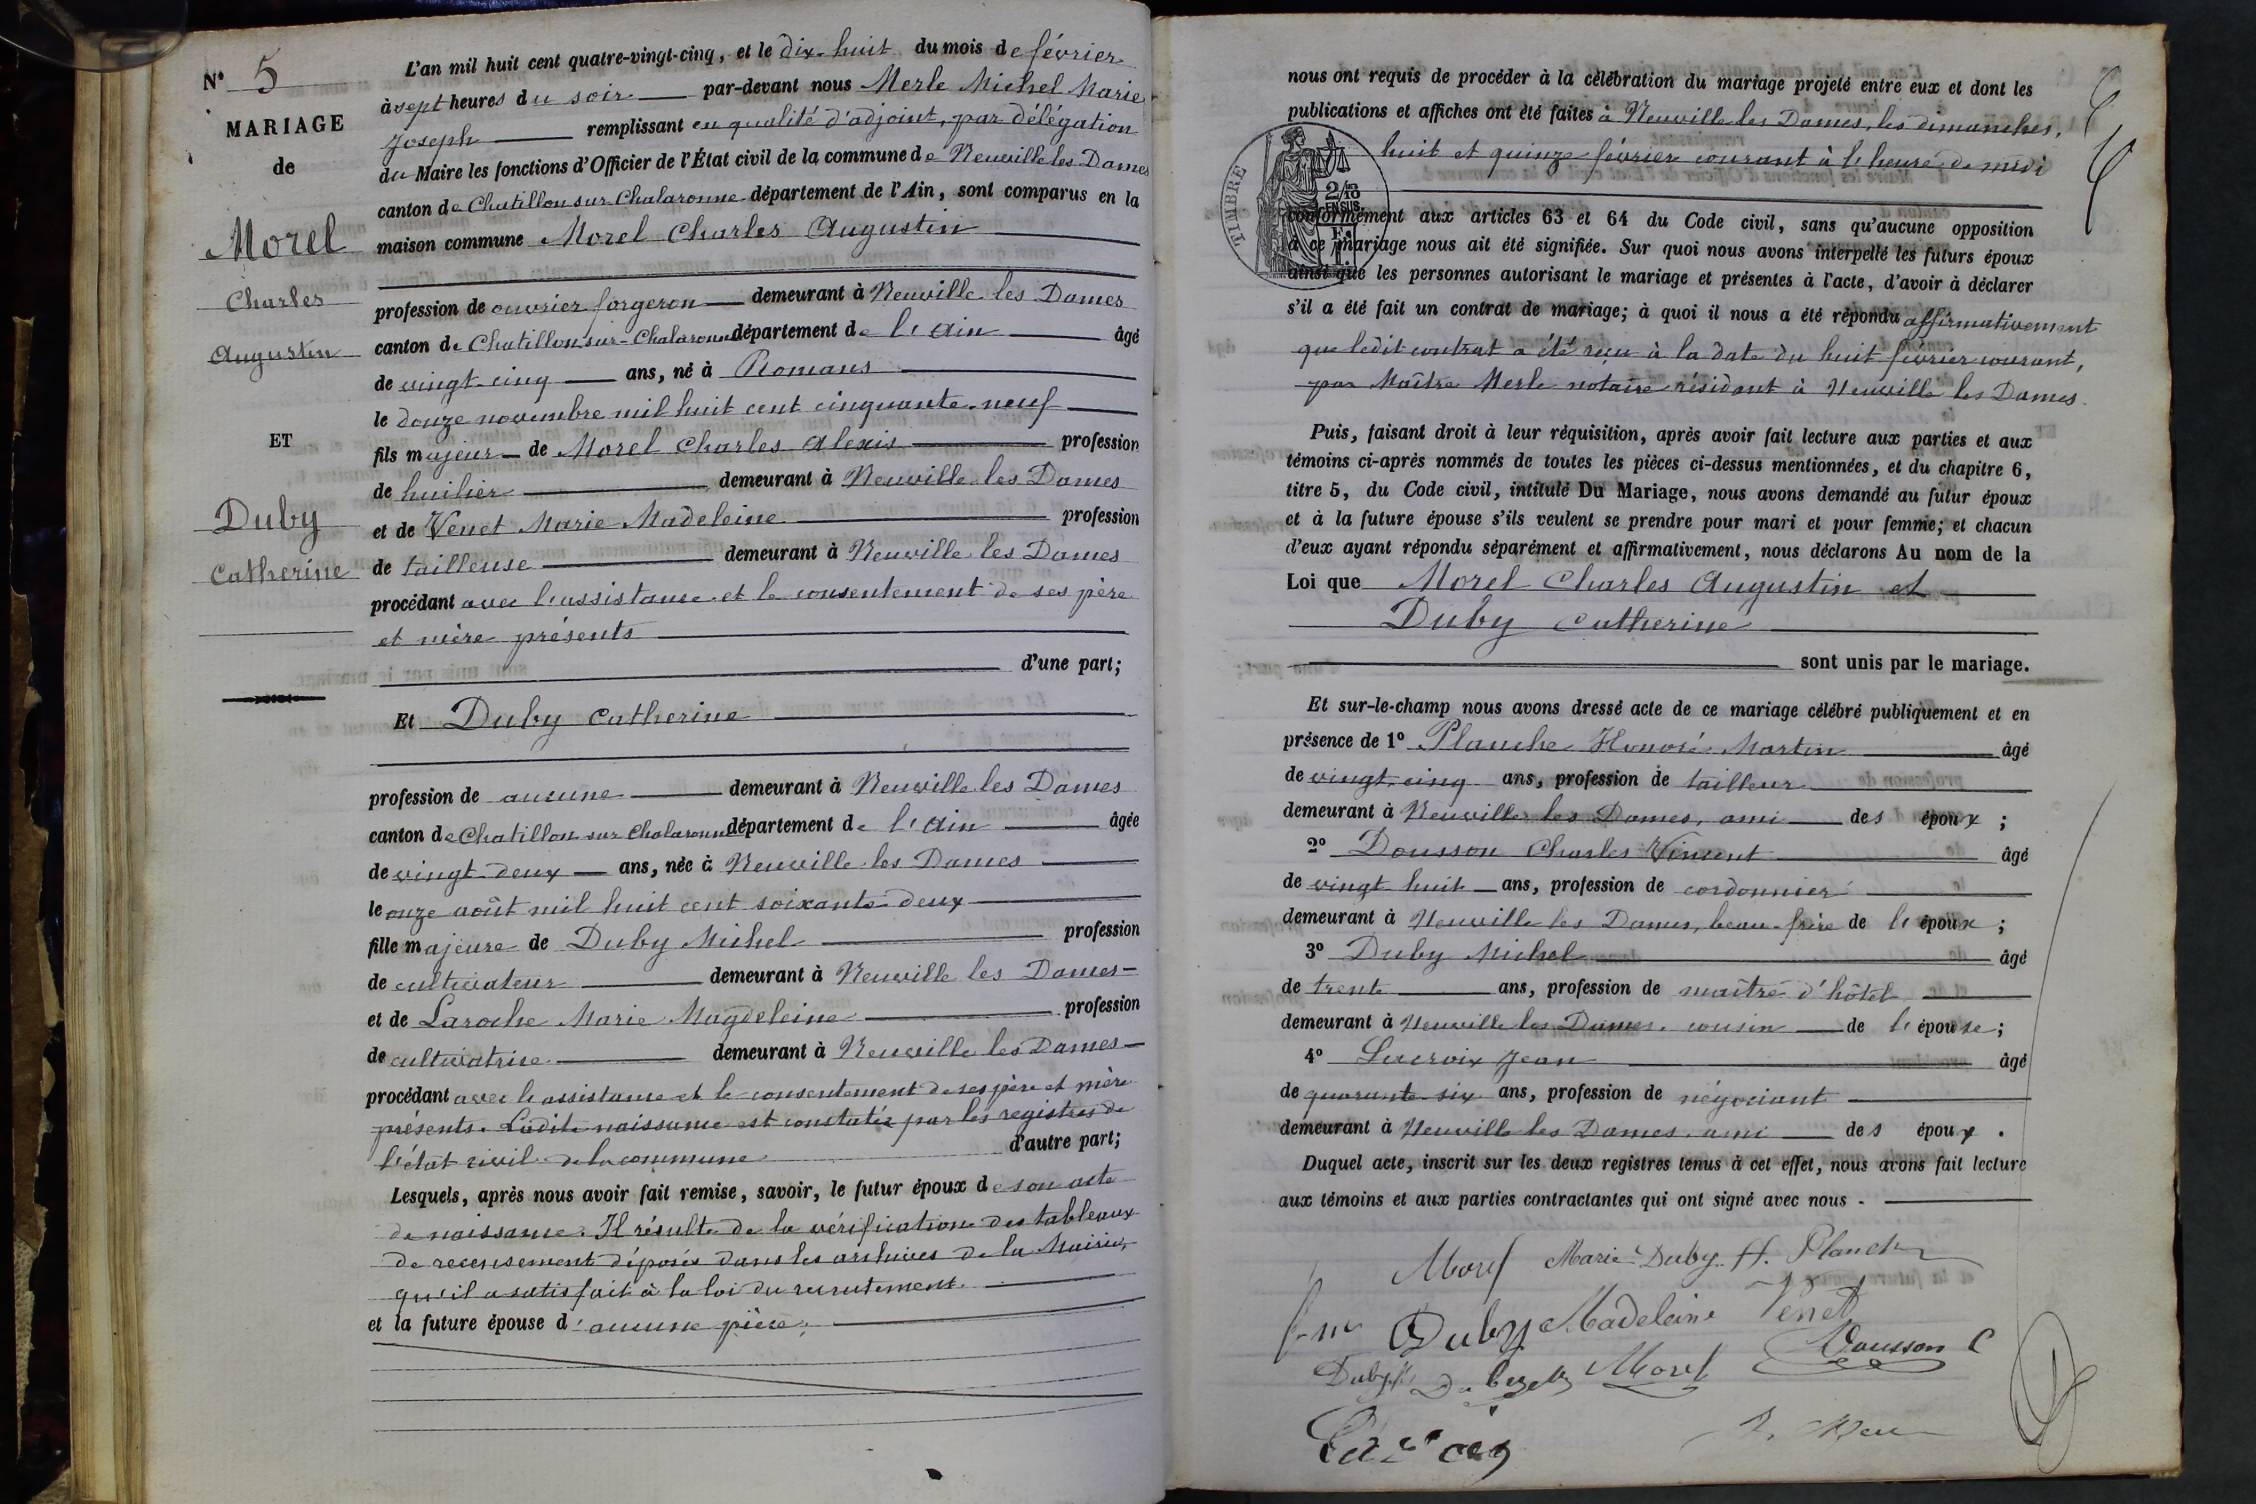 N° 5
MARIAGE
de
Morel
Charles
Augustin
ET
Duby
Catherine
L'an mil huit cent quatre-vingt-cinq, et le dix-huit du mois de février
à sept heures du soir par-devant nous Merle Michel Marie
Joseph remplissant en qualité d'adjoint, par délégation
du Maire les fonctions d'Officier de l'État civil de la commune de Neuville les Dames
canton de Chatillon sur Chalaronne département de l'Ain, sont comparus en la
maison commune Morel Charles Augustin
profession de ouvrier forgeron demeurant à Neuville les Dames
canton de Chatillon-sur-Chalaronne département de l'Ain âgé
de vingt-cinq ans, né à Romans
le douze novembre mil huit cent cinquante-neuf
fils majeur de Morel Charles Alexis profession
de huilier demeurant à Neuville les Dames
et de Venet Marie Madeleine profession
de tailleuse demeurant à Neuville les Dames
procédant avec l'assistance et le consentement de ses père
et mère présents
d'une part;
Et Duby Catherine
profession de aucune demeurant à Neuville les Dames
canton de Chatillon sur Chalaronne département de l'Ain âgée
de vingt-deux ans, née à Neuville les Dames
le onze août mil huit cent soixante-deux
fille majeure de Duby Michel profession
de cultivateur demeurant à Neuville les Dames
et de Laroche Marie Magdeleine profession
de cultivatrice demeurant à Neuville les Dames
procédant avec l'assistance et le consentement de ses père et mère
présents. Ladite naissance est constatée par les registres de
l'état civil de la commune d'autre part;
Lesquels, après nous avoir fait remise, savoir, le futur époux de son acte
de naissance. Il résulte de la vérification des tableaux
de recensement déposés dans les archives de la Mairie,
qu'il a satisfait à la loi du recrutement.
et la future épouse d'aucune pièce,
nous ont requis de procéder à la célébration du mariage projeté entre eux et dont les
publications et affiches ont été faites à Neuville les Dames, les dimanches,
huit et quinze février courant à l'heure de midi
TIMBRE
2/10
EN SUS
conformément aux articles 63 et 64 du Code civil, sans qu'aucune opposition
à ce mariage nous ait été signifiée. Sur quoi nous avons interpellé les futurs époux
ainsi que les personnes autorisant le mariage et présentes à l'acte, d'avoir à déclarer
s'il a été fait un contrat de mariage; à quoi il nous a été répondu affirmativement
que ledit contrat a été reçu à la date du huit février courant,
par Maître Merle notaire résidant à Neuville les Dames.
Puis, faisant droit à leur réquisition, après avoir fait lecture aux parties et aux
témoins ci-après nommés de toutes les pièces ci-dessus mentionnées, et du chapitre 6,
titre 5, du Code civil, intitulé Du Mariage, nous avons demandé au futur époux
et à la future épouse s'ils veulent se prendre pour mari et pour femme; et chacun
d'eux ayant répondu séparément et affirmativement, nous déclarons Au nom de la
Loi que Morel Charles Augustin et
Duby Catherine
sont unis par le mariage.
Et sur-le-champ nous avons dressé acte de ce mariage célébré publiquement et en
présence de 1° Planche Honoré Martin âgé
de vingt-cinq ans, profession de tailleur
demeurant à Neuville les Dames, ami des époux ;
2° Dousson Charles Vincent âgé
de vingt huit ans, profession de cordonnier
demeurant à Neuville les Dames, beau-frère de l'époux ;
3° Duby Michel âgé
de trente ans, profession de maître d'hôtel
demeurant à Neuville les Dames, cousin de l'épouse ;
4° Lacroix Jean âgé
de quarante-six ans, profession de négociant
demeurant à Neuville les Dames, ami des époux .
Duquel acte, inscrit sur les deux registres tenus à cet effet, nous avons fait lecture
aux témoins et aux parties contractantes qui ont signé avec nous .
Morel Marie Duby H. Planche
Duby Madeleine Venet
Dousson C
Duby Morel